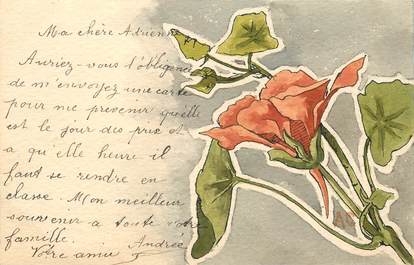 Ma chère Adrienne
Auriez-vous l'obligence
de m'envoyez une carte
pour me prevenir quelle
est le jour des prix et
a qu'elle heure il
faut se rendre en
classe. Mon meilleur
souvenir a toute votre
famille. Andrée
Votre amie